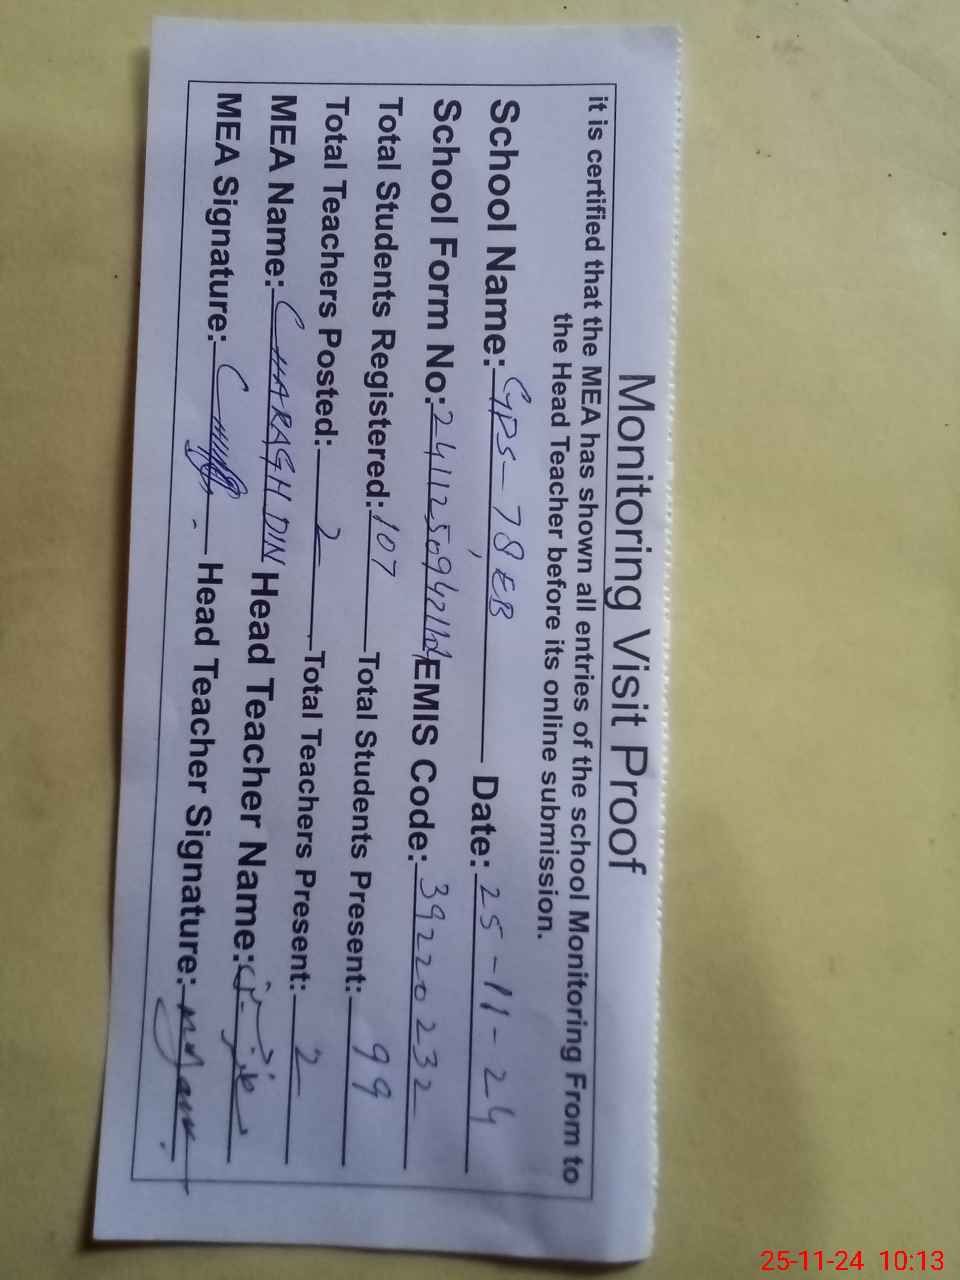 Monitoring Visit Proof
it is certified that the MEA has shown all entries of the school Monitoring From to
the Head Teacher before its online submission.
School Name: GPS-78 EB Date: 25-11-24
School Form No: EMIS Code: 39220232
Total Students Registered: 107 Total Students Present: 99
Total Teachers Posted: 2 Total Teachers Present: 2
MEA Name: CHARAGH DIN Head Teacher Name:
MEA Signature: Head Teacher Signature:
25-11-24 10:13